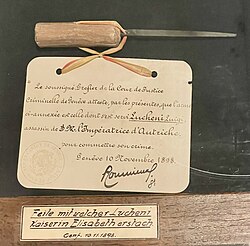 Le soussigné Greffier de la Cour de Justice
Criminelle de Genève atteste, par les présentes, que l'arme
ci-annexée est celle dont s'est servi Lucheni Luigi
assassin de S.M. l'Impératrice d'Autriche
pour commettre son crime.
Genève 10 Novembre 1898.
Feile mit welcher Lucheni
Kaiserin Elisabeth erstach
Genf. 10.11.1898.